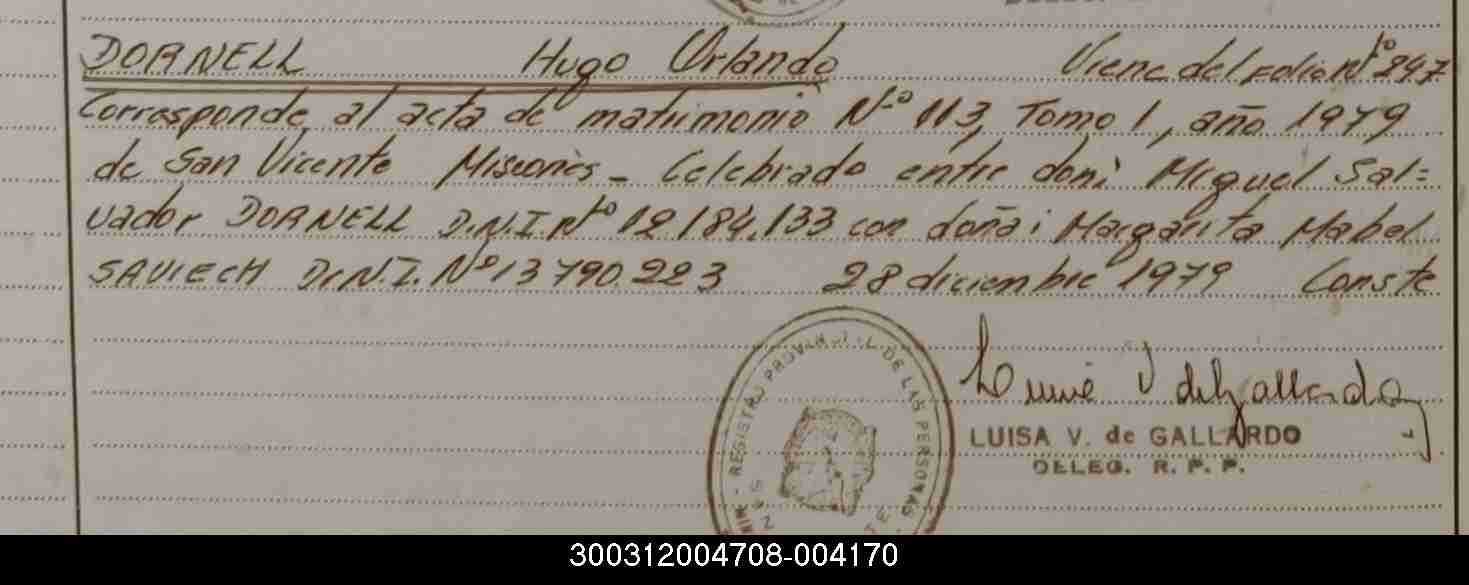 DORNELL Hugo Orlando Viene del folio Nº 247
Corresponde al acta de matrimonio Nº 113, Tomo 1, año 1979
de San Vicente Misiones - Celebrado entre don: Miguel Sal=
vador DORNELL D.N.I. Nº 12.184.133 con doña: Margarita Mabel
SAVIECH D.N.I. Nº 13.790.223 28 diciembre 1979 Conste
REGISTRO PROVINCIAL DE LAS PERSONAS
LUISA V. de GALLARDO
DELEG. R. P. P.
300312004708-004170